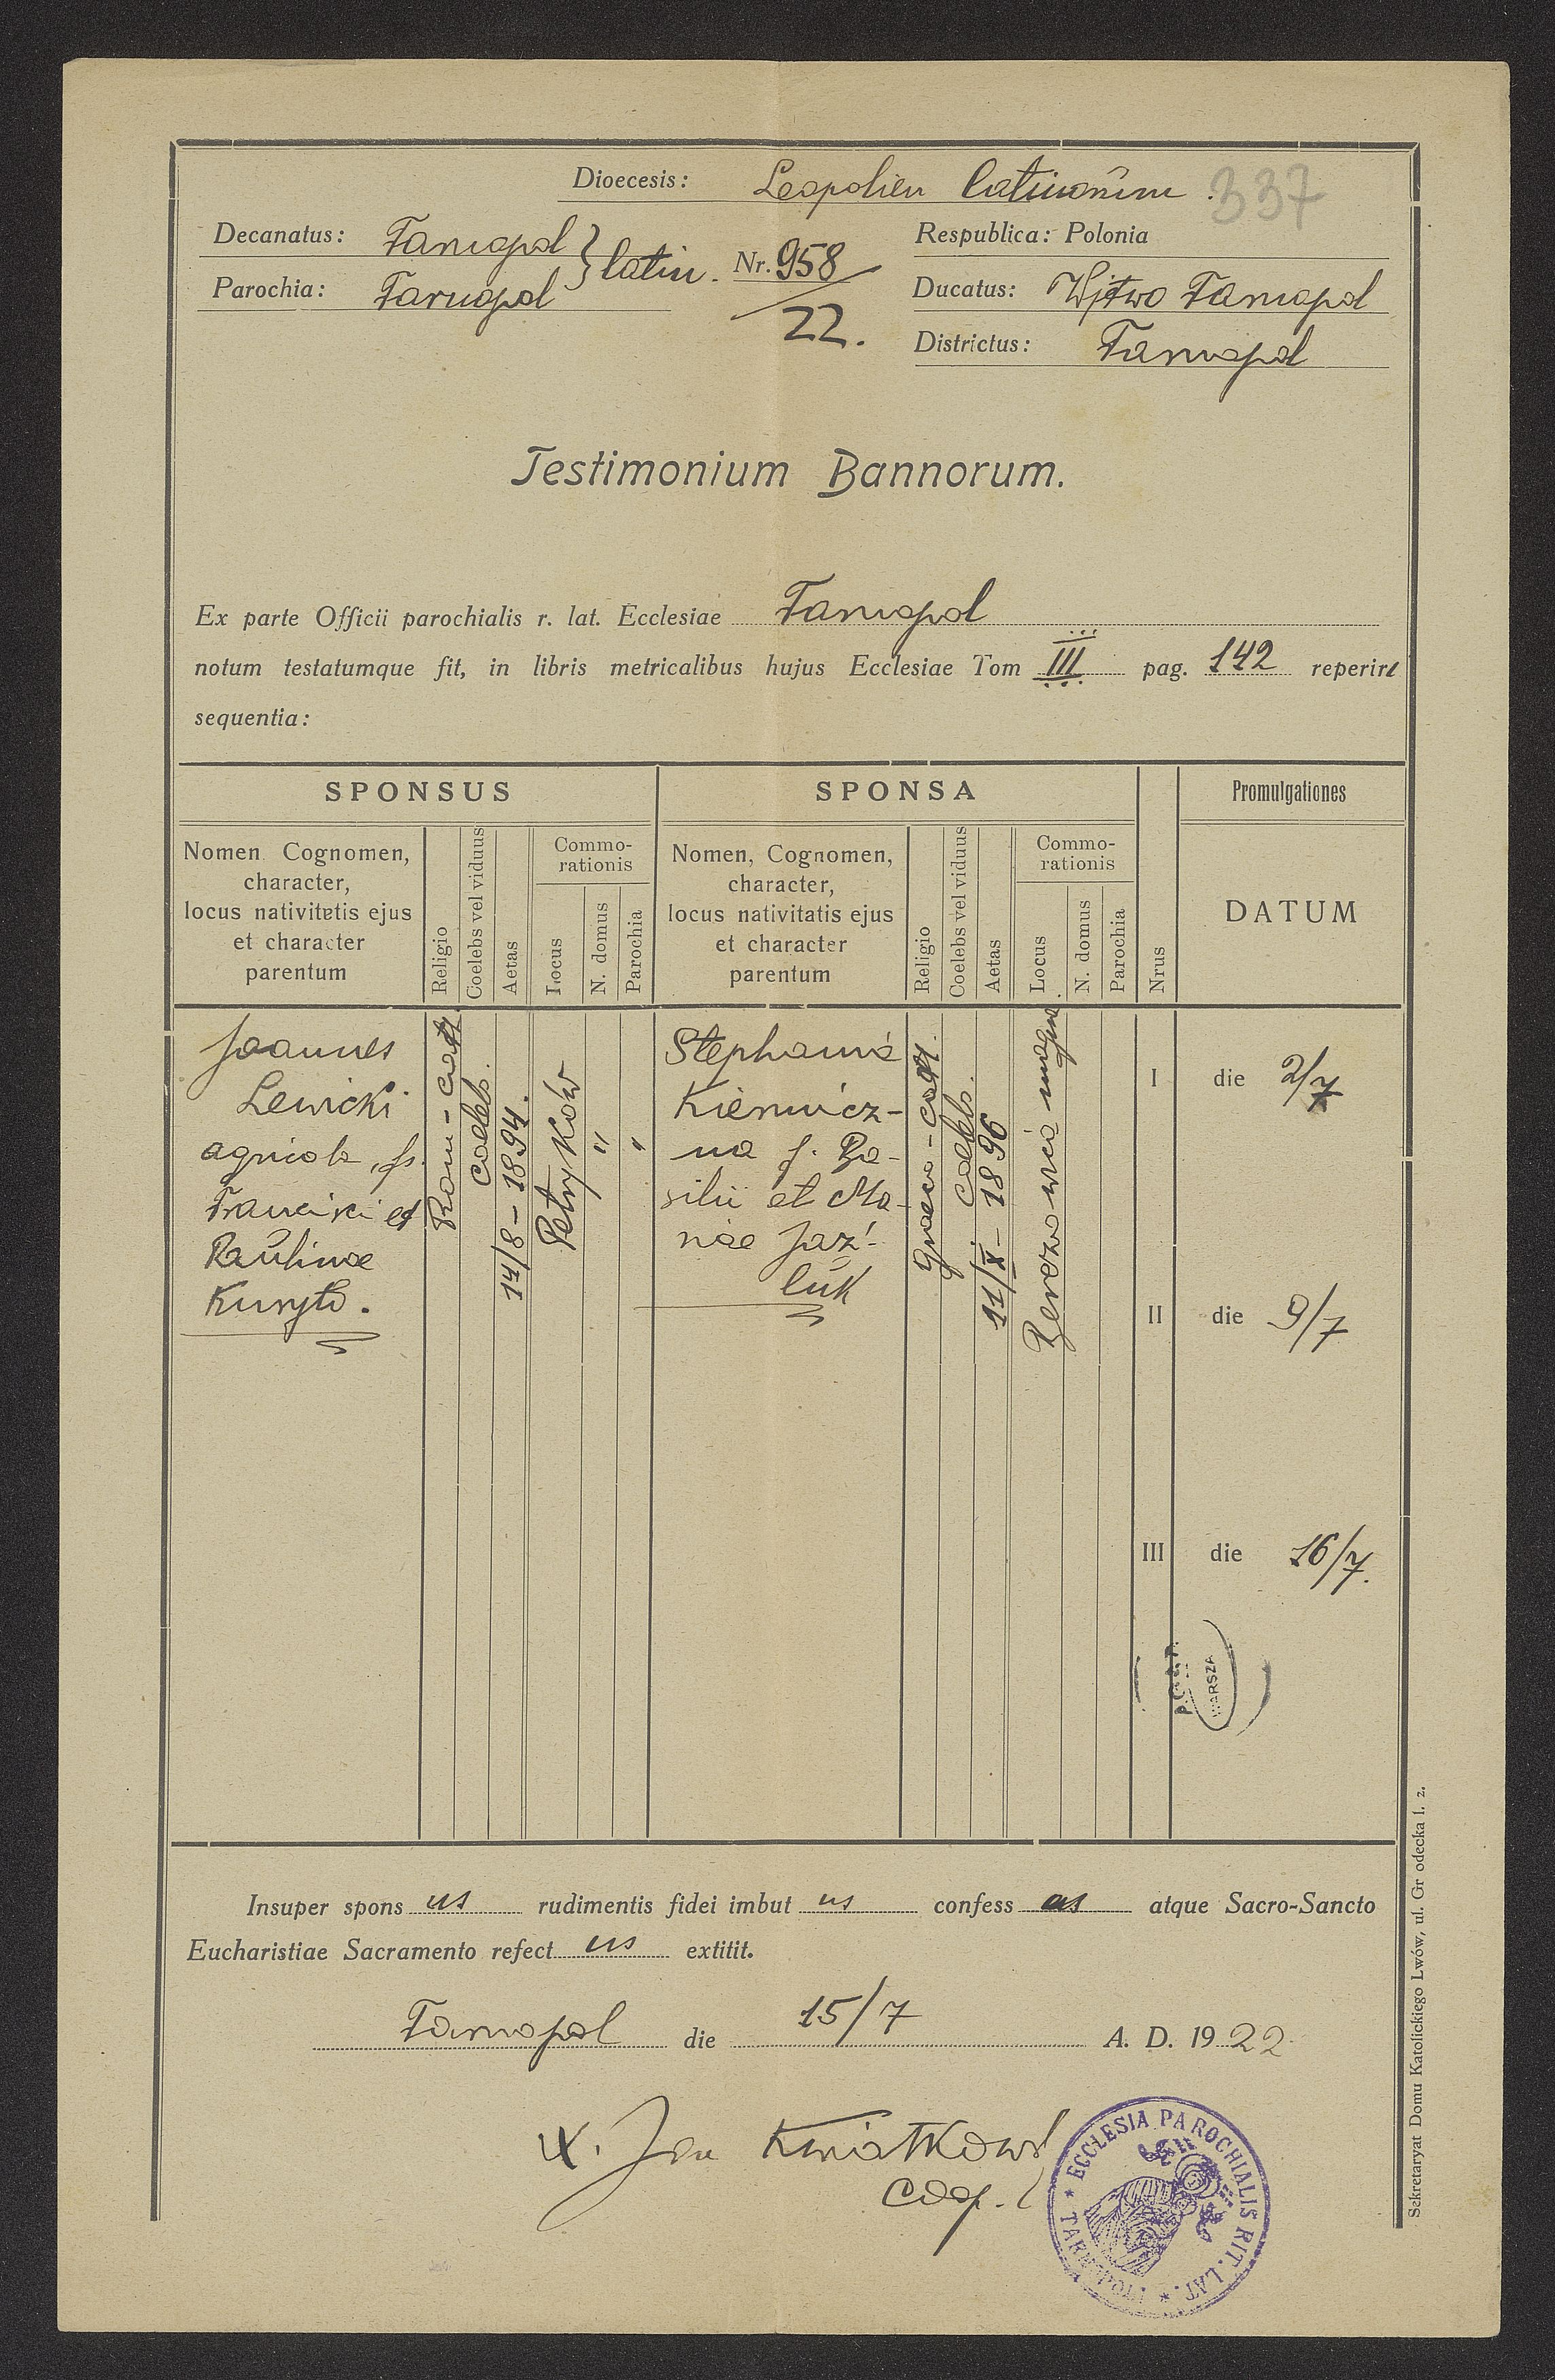 Dioecesis: Leopolien latinorum. 337
Decanatus: Tarnopol } latin. Nr. 958/22. Respublica: Polonia
Parochia: Tarnopol Ducatus: Wjtwo Tarnopol
Districtus: Tarnopol
Testimonium Bannorum.
Ex parte Officii parochialis r. lat. Ecclesiae Tarnopol
notum testatumque fit, in libris metricalibus hujus Ecclesiae Tom III pag. 142 reperire
sequentia:
SPONSUS
Nomen Cognomen,
character,
locus nativitatis ejus
et character
parentum
Religio
Coelebs vel viduus
Aetas
Commo-
rationis
Locus
N. domus
Parochia
SPONSA
Nomen, Cognomen,
character,
locus nativitatis ejus
et character
parentum
Religio
Coelebs vel viduus
Aetas
Commo-
rationis
Locus
N. domus
Parochia
Nrus
Promulgationes
DATUM
Joannes
Lewicki
agricola, fs.
Francisci et
Paulinae
Kuryło.
Rom-cath.
coelebs.
14/8-1894.
Petryków
"
"
Stephania
Kiernicz-
na f. Ba-
silii et Ma-
riae Jaź-
luk
Graeco-cath.
coelebs.
11/X-1896
Berezowica magna.
I die 2/7
II die 9/7
III die 16/7.
WARSZA
Insuper spons us rudimentis fidei imbut us confess us atque Sacro-Sancto
Eucharistiae Sacramento refect us extitit.
Tarnopol die 15/7 A. D. 1922
X. Jan Kwiatkows
coop.
* ECCLESIA PAROCHIALIS RIT. LAT. * TARNOPOLI
Sekretaryat Domu Katolickiego Lwów, ul. Gr odecka l. 2.